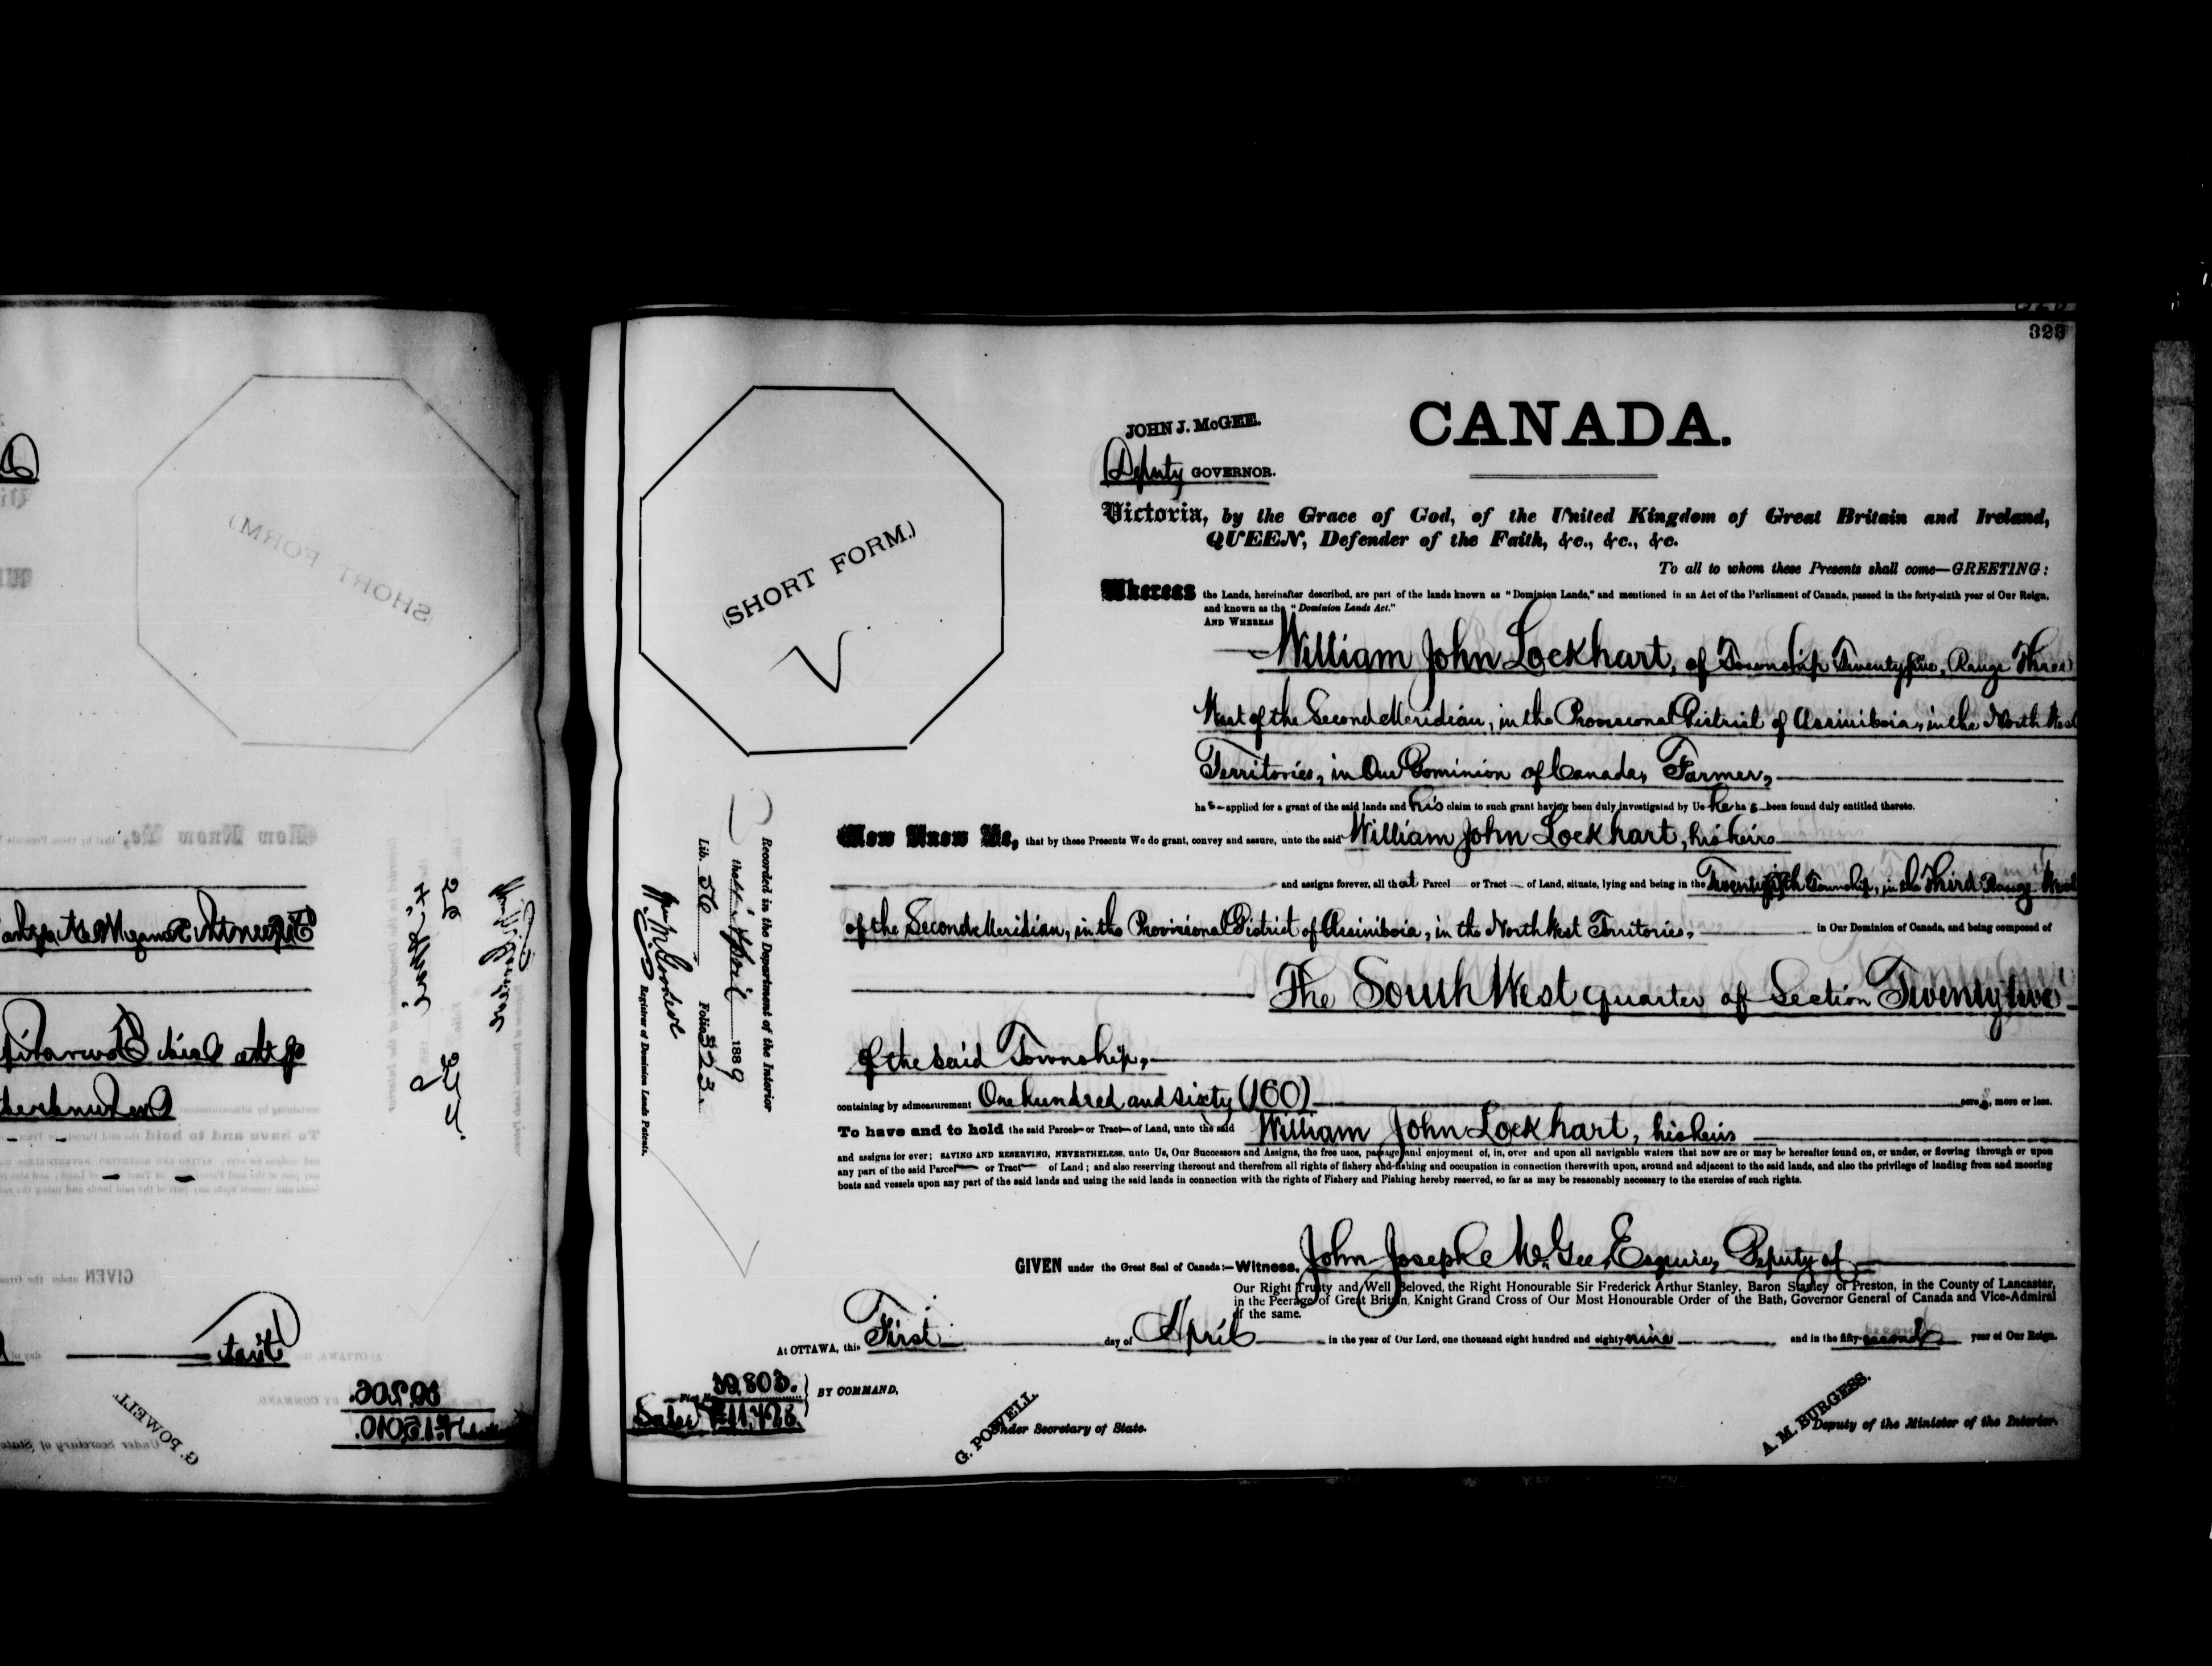 323
CANADA.
JOHN J. McGEE.
Deputy GOVERNOR.
Victoria, by the Grace of God, of the United Kingdom of Great Britain and Ireland,
QUEEN, Defender of the Faith, &c., &c., &c.
To all to whom these Presents shall come—GREETING:
(SHORT FORM.)
Whereas the Lands, hereinafter described, are part of the lands known as "Dominion Lands," and mentioned in an Act of the Parliament of Canada, passed in the forty-sixth year of Our Reign,
and known as the "Dominion Lands Act."
AND WHEREAS
William John Lockhart, of Township Twenty five, Range Three
West of the Second Meridian, in the Provisional District of Assiniboia, in the North West
Territories, in Our Dominion of Canada, Farmer,
has applied for a grant of the said lands and his claim to such grant having been duly investigated by Us he has been found duly entitled thereto.
Now Know Ye, that by these Presents We do grant, convey and assure, unto the said William John Lockhart, his heirs
and assigns forever, all that Parcel or Tract of Land, situate, lying and being in the Twenty fifth Township, in the Third Range West
of the Second Meridian, in the Provisional District of Assiniboia, in the North West Territories, in Our Dominion of Canada, and being composed of
The South West quarter of Section Twenty two
of the said Township,
containing by admeasurement One hundred and sixty (160) acres, more or less.
To have and to hold the said Parcel or Tract of Land, unto the said William John Lockhart, his heirs
and assigns for ever; SAVING AND RESERVING, NEVERTHELESS, unto Us, Our Successors and Assigns, the free uses, passage and enjoyment of, in, over and upon all navigable waters that now are or may be hereafter found on, or under, or flowing through or upon
any part of the said Parcel or Tract of Land; and also reserving thereout and therefrom all rights of fishery and fishing and occupation in connection therewith upon, around and adjacent to the said lands, and also the privilege of landing from and mooring
boats and vessels upon any part of the said lands and using the said lands in connection with the rights of Fishery and Fishing hereby reserved, so far as may be reasonably necessary to the exercise of such rights.
GIVEN under the Great Seal of Canada:—Witness, John Joseph McGee, Esquire, Deputy of
Our Right Trusty and Well Beloved, the Right Honourable Sir Frederick Arthur Stanley, Baron Stanley of Preston, in the County of Lancaster,
in the Peerage of Great Britain, Knight Grand Cross of Our Most Honourable Order of the Bath, Governor General of Canada and Vice-Admiral
of the same.
At OTTAWA, this First day of April in the year of Our Lord, one thousand eight hundred and eighty nine and in the fifty-second year of Our Reign.
BY COMMAND,
Sales
G. POWELL.
Under Secretary of State.
A. M. BURGESS.
Deputy of the Minister of the Interior.
Recorded in the Department of the Interior
the April 1889
Lib. 56 Folio 323.
Registrar of Dominion Lands Patents.